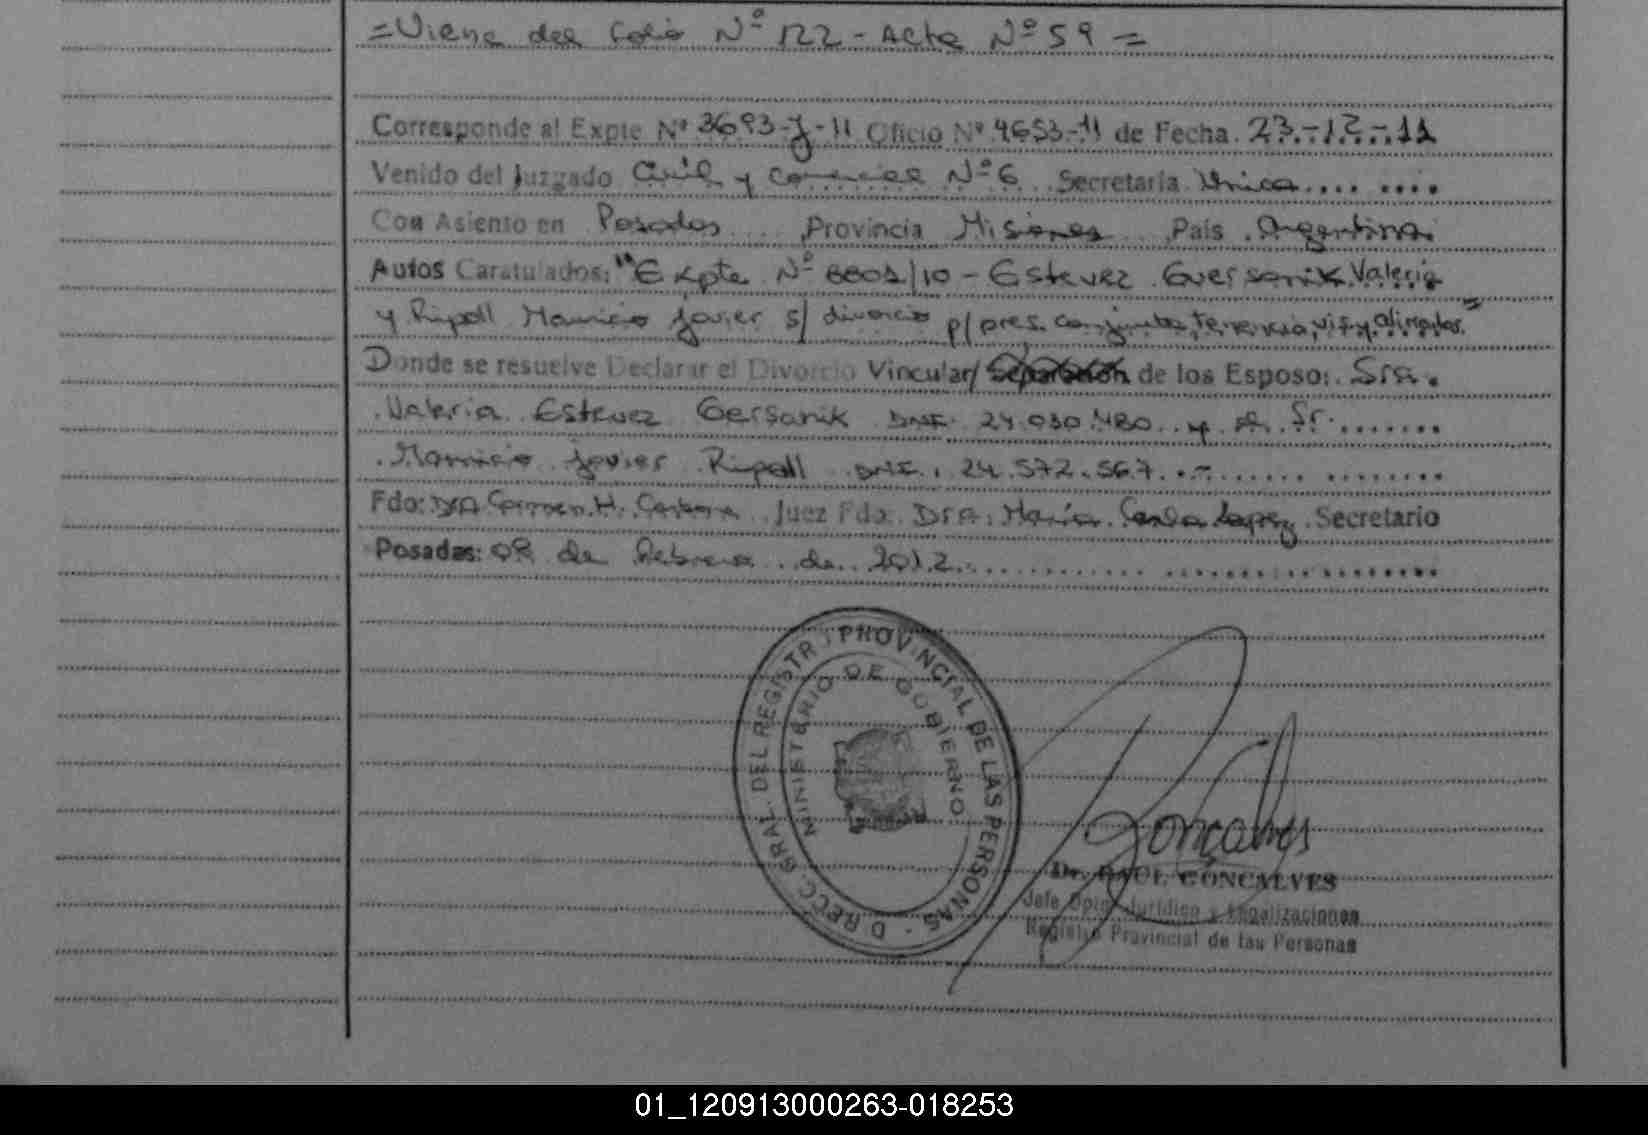 =Viene del folio Nº 122 - Acta Nº 59=
Corresponde al Expte Nº 3693-J-11 Oficio Nº 4653-11 de Fecha 23.-12.-11
Venido del Juzgado Civil y Comercial Nº 6 Secretaria Unica
Con Asiento en Posadas Provincia Misiones Pais Argentina
Autos Caratulados: "Expte Nº 6601/10 - Estevez Guersanik Valeria
y Ripoll Mauricio Javier s/ divorcio p/ pres. conjunta, tenencia,
Donde se resuelve Declarar el Divorcio Vincular/ Separación de los Esposo: Sra.
Valeria Estevez Gersanik DNI. 24.030.480 y Sr.
Mauricio Javier Ripoll DNI. 24.572.567
Fdo: DRA Carmen H. Juez Fdo. Dra. María Carla Lopez Secretario
Posadas: 08 de Febrero de 2012.
DIRECC. GRAL. DEL REGISTRO PROVINCIAL DE LAS PERSONAS
MINISTERIO DE GOBIERNO
Gonçalves
Dr. RAUL GONCALVES
Jefe Dpto. Jurídico y Legalizaciones
Registro Provincial de las Personas
01_120913000263-018253